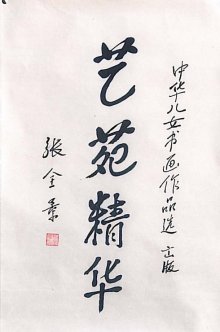 中华儿女书画作品选出版
艺苑精华
张全景